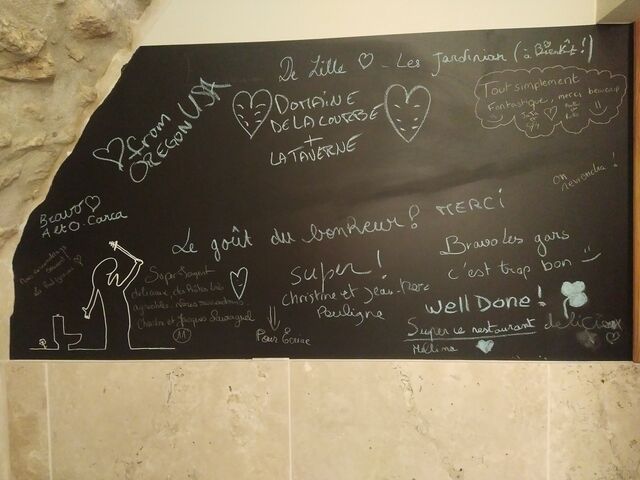 De Lille ♡ - Les Jardinian (à Bientôt !)
♡ from
OREGON USA
DOMAINE
DE LA COURBE
+
LA TAVERNE
Tout simplement
Fantastique, merci beaucoup
on
reviendra !
Bravo ♡
A et O. Carca
Le goût du bonheur ! MERCI
Bravo les gars
c'est trop bon
Super !
Christine et Jean-Marc
Pouligne
Super
Charles et Jacques
well Done !
Super ce restaurant délicieux
Mélina
Pour